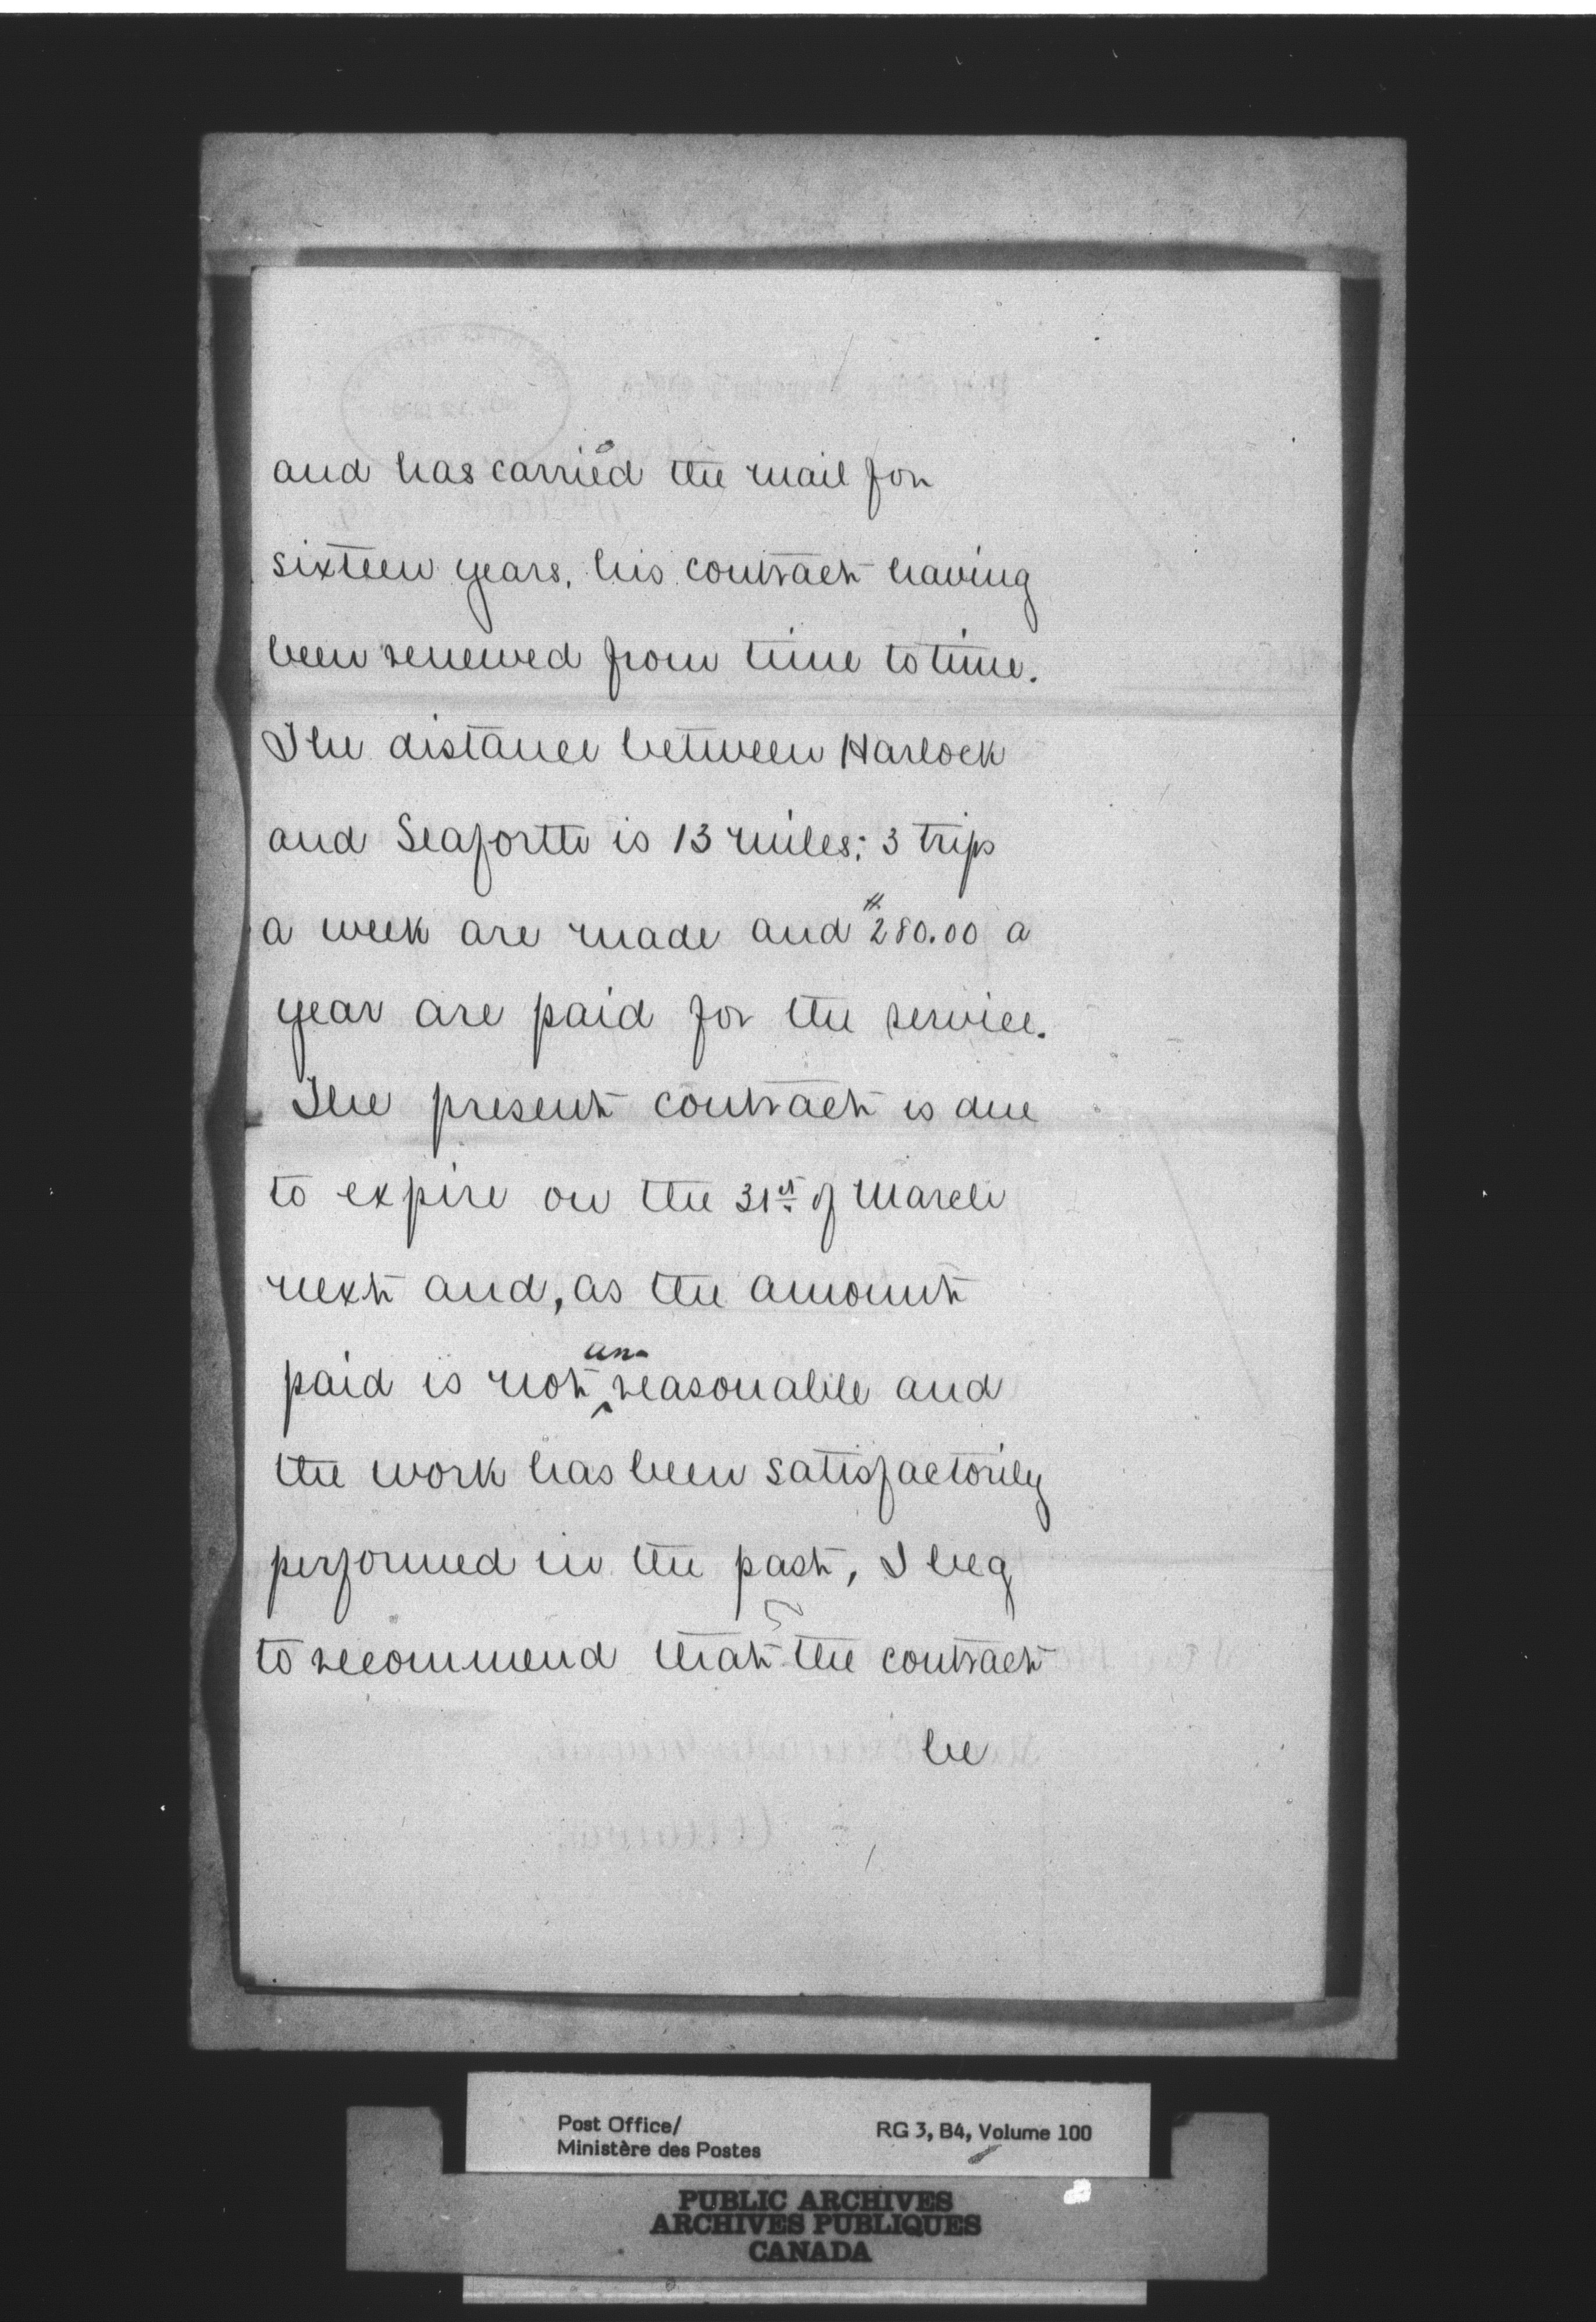 and has carried the mail for
sixteen years, his contract having
been renewed from time to time.
The distance between Harlock
and Seaforth is 13 miles; 3 trips
a week are made and $280.00 a
year are paid for the service.
The present contract is due
to expire on the 31st of March
next and, as the amount
paid is not un-reasonable and
the work has been satisfactorily
performed in the past, I beg
to recommend that the contract
be
Post Office/
Ministère des Postes
RG 3, B4, Volume 100
PUBLIC ARCHIVES
ARCHIVES PUBLIQUES
CANADA